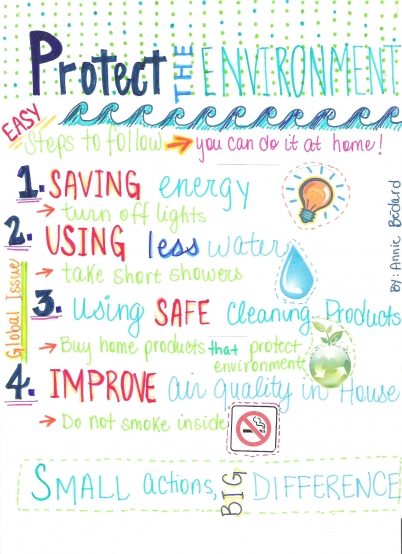 Protect THE ENVIRONMENT
EASY
Steps to follow → you can do it at home!
1. SAVING energy
→ turn off lights
2. USING less water
→ take short showers
3. Using SAFE Cleaning Products
→ Buy home products that protect
environment
4. IMPROVE air quality in House
→ Do not smoke inside
Global Issue
By: Annie Bédard
SMALL actions, BIG DIFFERENCE